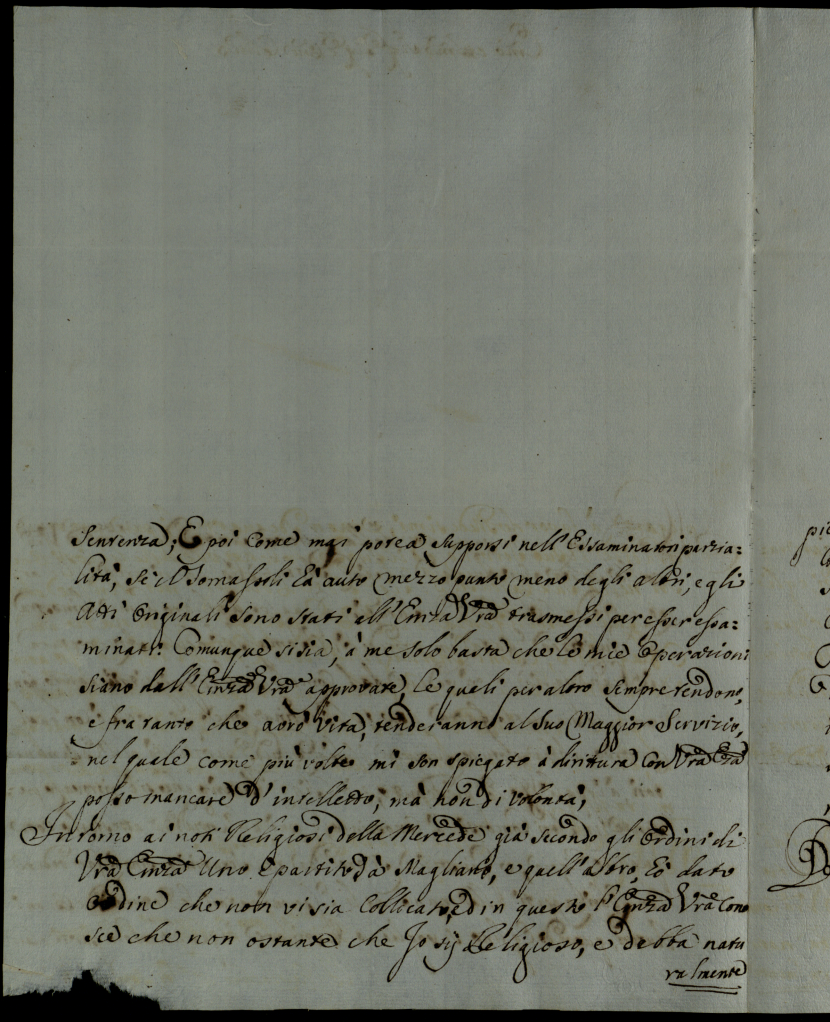 Sentenza; E poi Come mai potea Supporsi nell'Essaminatori parzia=
lità, se il Tomasoli hà auto mezzo punto meno degli altri, e gli
Atti Originali Sono stati all'Em̃za Vrã trasmessi per esser essa=
minati: Comunque si sia, à me solo basta che le mie Operazioni
siano dall'Em̃za Vrã approvate, le quali per altro sempre tendono,
e fra tanto che avrò Vita, tenderanno al Suo Maggior Servizio,
nel quale come più volte mi son spiegato à diritura Con Vrã Em̃za
posso mancare d'intelletto, mà non di Volontà;
Intorno ai noti Religiosi della Mercede già secondo gli Ordini di
Vrã Em̃za Uno è partito dà Magliano, e quell'altro, hò dato
Ordine che non vi sia Collocato, ed in questo l'Em̃za Vrã Cono
sce che non ostante che Io sij Religioso, e debba natu
ralmente